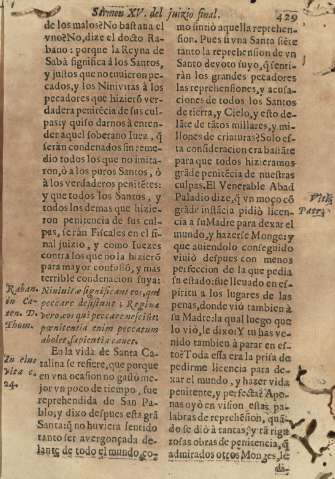 Sermon XV. del juizio final. 429
de los malos? No bastaua el
vno? No, dize el docto Rabano:
porque la Reyna de
Sabà significa à los Santos,
y justos que no tuuieron pecados,
y los Niniuitas à los
pecadores que hizierō verdadera
penitēcia de sus culpas:
y quiso darnos à entender
aquel soberano Iuez, q̄
seràn condenados sin remedio
todos los que no imitaron,
ò à los puros Santos, ò
à los verdaderos penitētes:
y que todos los Santos, y
todos los demas que hizieron
penitencia de sus culpas,
seràn Fiscales en el final
juizio, y como Iuezes
contra los que no la hizierō
para mayor confusiō, y mas
terrible condenacion suya:
Raban.
in Caten.
D.
Thom.
Niniuitæ significant eos, qui
peccare desistunt: Regina
vero, eos qui peccare nesciūt;
pœnitentia enim peccatum
abolet, sapientia cauet.
En la vida de Santa Catalina
se refiere, que porque
en vna ocasion no gastò mejor
vn poco de tiempo, fue
reprehendida de San Pablo,
y dixo despues esta grā
Santa: q̄ no huviera sentido
tanto ser avergonçada delante
de todo el mundo, co-
In eius
vita c.
24.
mo sintiò aquella reprehension.
Pues si vna Santa siēte
tanto la reprehension de vn
Santo devoto suyo, q̄ sentiràn
los grandes pecadores
las reprehensiones, y acusaciones
de todos los Santos
de tierra, y Cielo, y esto delāte
de tātos millares, y millones
de criaturas? Solo esta
consideracion era bastāte
para que todos hizieramos
grāde penitēcia de nuestras
culpas. El Venerable Abad
Paladio dize, q̄ vn moço cō
grāde instācia pidiò licencia
à su Madre para dexar el
mundo, y hazerse Monge: y
que auiendolo conseguido
viuiò despues con menos
perfeccion de la que pedia
su estado: fue lleuado en espiritu
à los lugares de las
penas, donde viò tambien à
su Madre: la qual luego que
lo viò, le dixo: Tu has venido
tambien à parar en esto?
Toda essa era la prisa de
pedirme licencia para dexar
el mundo, y hazer vida
penitente, y perfecta? Aponas
oyò en vision estas palabras
de reprehēsion, quādo
se diò à tantas, y tā rigurosas
obras de penitencia, q̄
admirados otros Monges, le
Patrū
dà-